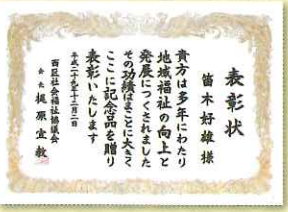 表彰状
笛木好雄 様
貴方は多年にわたり
地域福祉の向上と
発展につくされました
その功績はまことに大きく
ここに記念品を贈り
表彰いたします
平成二十九年十二月二日
西区社会福祉協議会
会長 梶原宜教